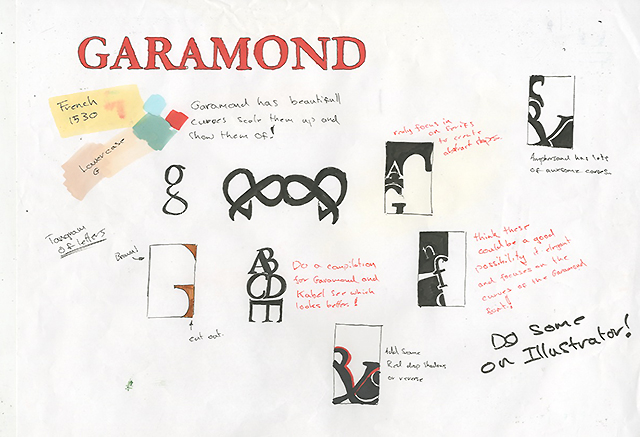 GARAMOND
French
1530
Lowercase
G
Garamond has beautifull
curves scale them up and
show them of!
g
really focus in
on serifs
to create
abstract shapes.
Ampersand has lots
of awesome curves.
of letters
Brown!
cut out.
AB
CD
E
Do a compilation
for Garamond and
Kabel see which
looks better!
think these
could be a good
possibility, elegant
and focuses on the
curves of the Garamond
font!
Do some
on Illustrator!
Add some
Red drop shadows
or reverse